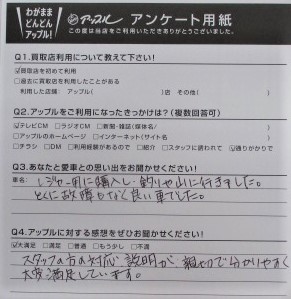 わがまま
どんどん
アップル!
アップル アンケート用紙
この度は当店をご利用いただきありがとうございました。
Q1.買取店利用について教えて下さい!
☑買取店を初めて利用
□過去に買取店を利用したことがある
利用した店舗: アップル( )店 その他( )
Q2.アップルをご利用になったきっかけは?(複数回答可)
☑テレビCM □ラジオCM □新聞・雑誌(媒体名/ )
□アップルのホームページ □インターネット(サイト名 )
□チラシ □DM □利用経験があるので □紹介 □スタッフに誘われて ☑通りがかりで
Q3.あなたと愛車との思い出をお聞かせください!
車名:
レジャー用に購入し、釣りや山に行きました。
とくに故障もなく良い車でした。
Q4.アップルに対する感想をぜひお聞かせください!
☑大満足 □満足 □普通 □もう少し □不満
スタッフの方の対応、説明が、親切で分かりやすく
大変満足しています。